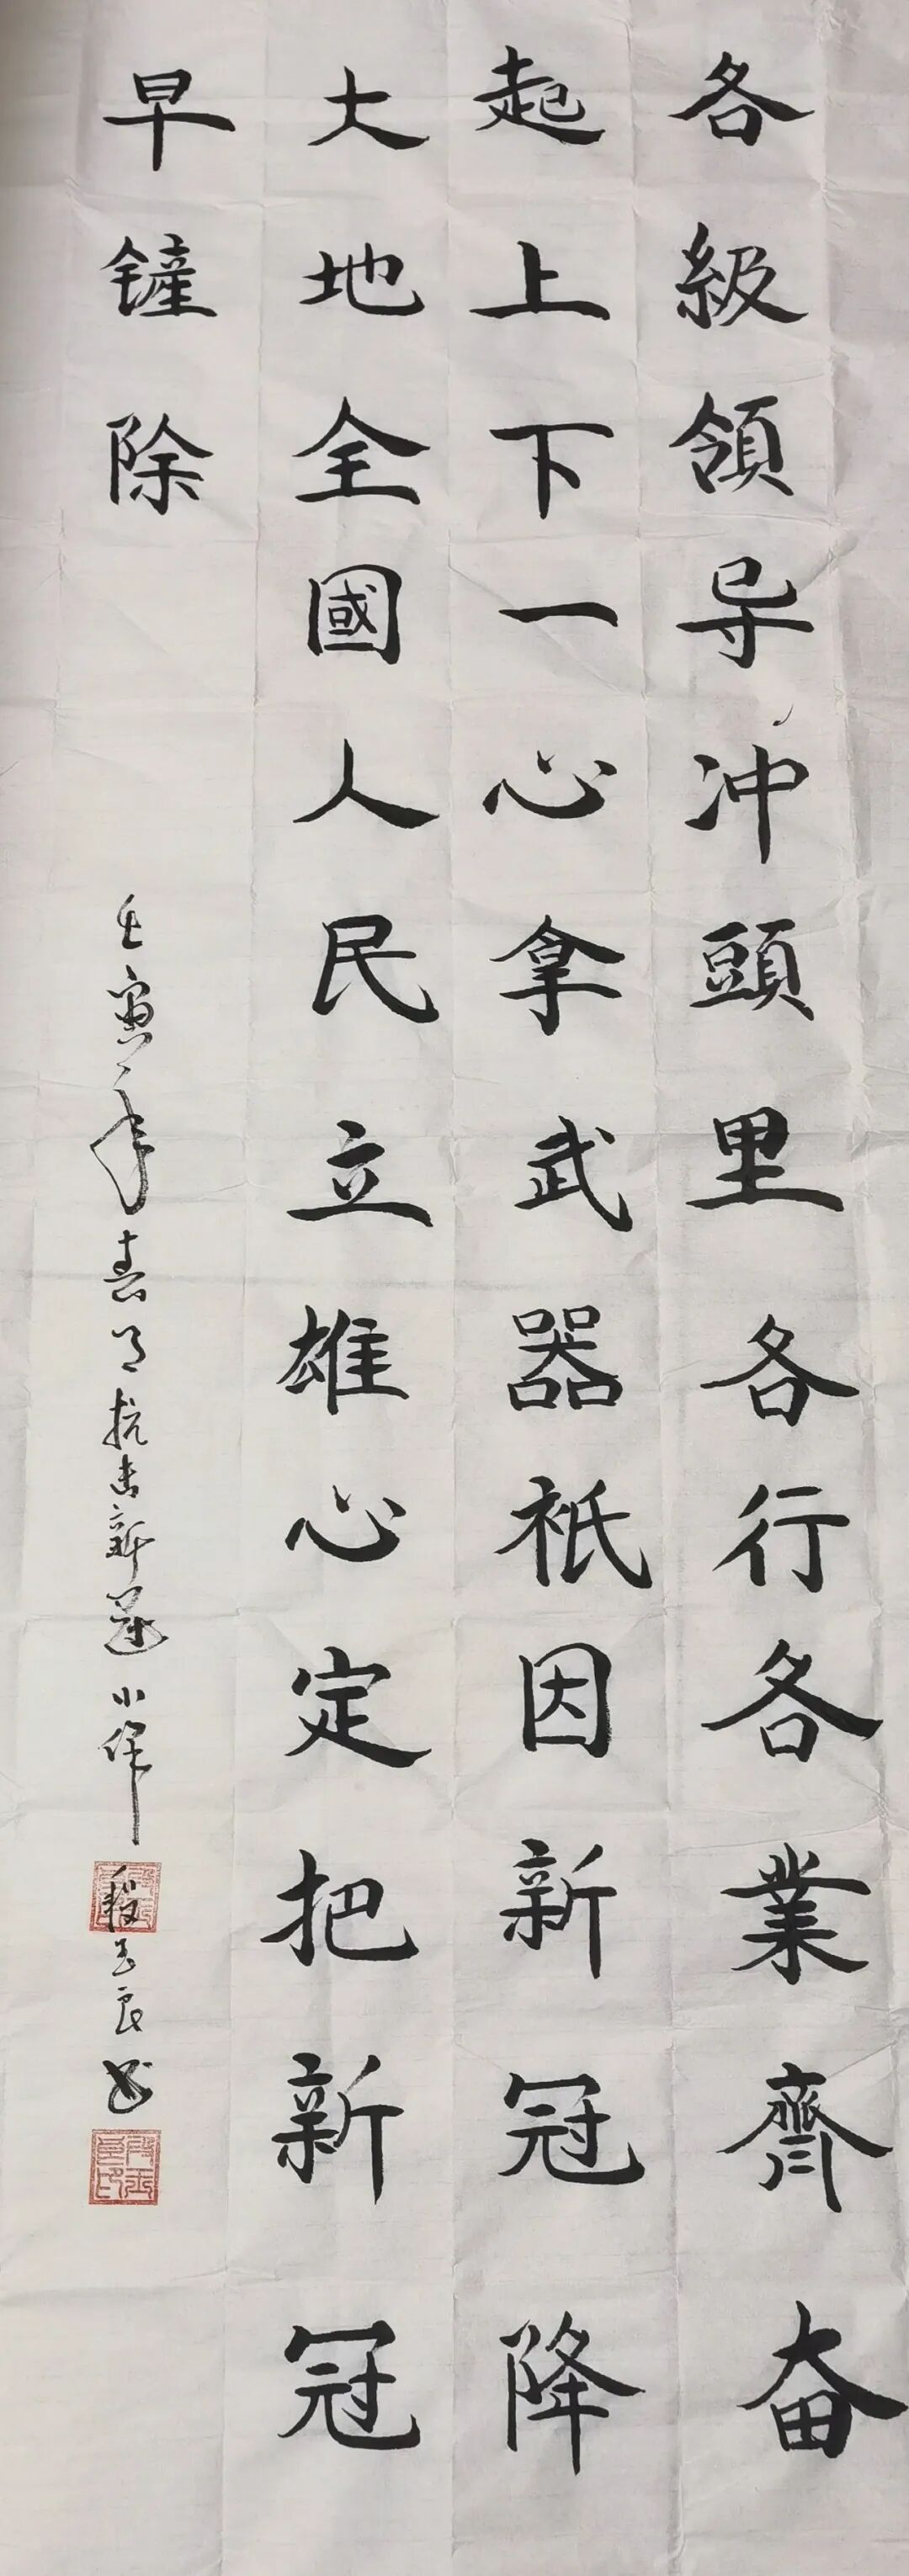 各級領导冲頭里各行各業齊奋
起上下一心拿武器祇因新冠降
大地全國人民立雄心定把新冠
早铲除
壬寅年春月抗击新冠小作
段玉良书